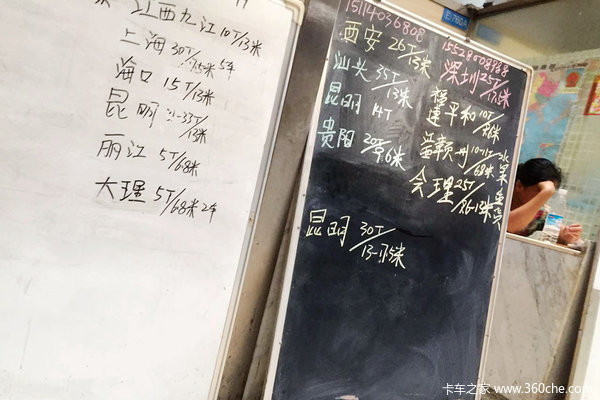 江西九江 10T/13米
上海 30T/17.5米 5车
海口 15T/13米
昆明 31-33T/13米
丽江 5T/6.8米
大理 5T/6.8米 2车
15114036808
西安 26T/13米
汕头 35T/13米
昆明 14T
贵阳 20T/9.6米
昆明 30T/13-17.5米
15528008988
深圳 25T/17.5米
福建平和 10T/9.6米
会理 25T/9.6-13米
卡车之家 www.360che.com